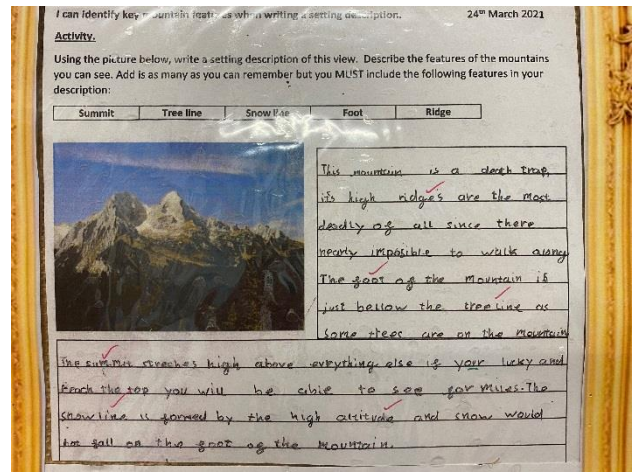 I can identify key mountain features when writing a setting description. 24th March 2021
Activity.
Using the picture below, write a setting description of this view. Describe the features of the mountains
you can see. Add is as many as you can remember but you MUST include the following features in your
description:
Summit Tree line Snow line Foot Ridge
This mountain is a death trap,
it's high ridges are the most
deadly of all since there
nearly imposible to walk along
The foot of the mountain is
just bellow the treeline as
some trees are on the mountain
The summit streches high above everything else if your lucky and
reach the top you will be able to see for miles. The
snowline is formed by the high altitude and snow would
not fall on the foot of the mountain.